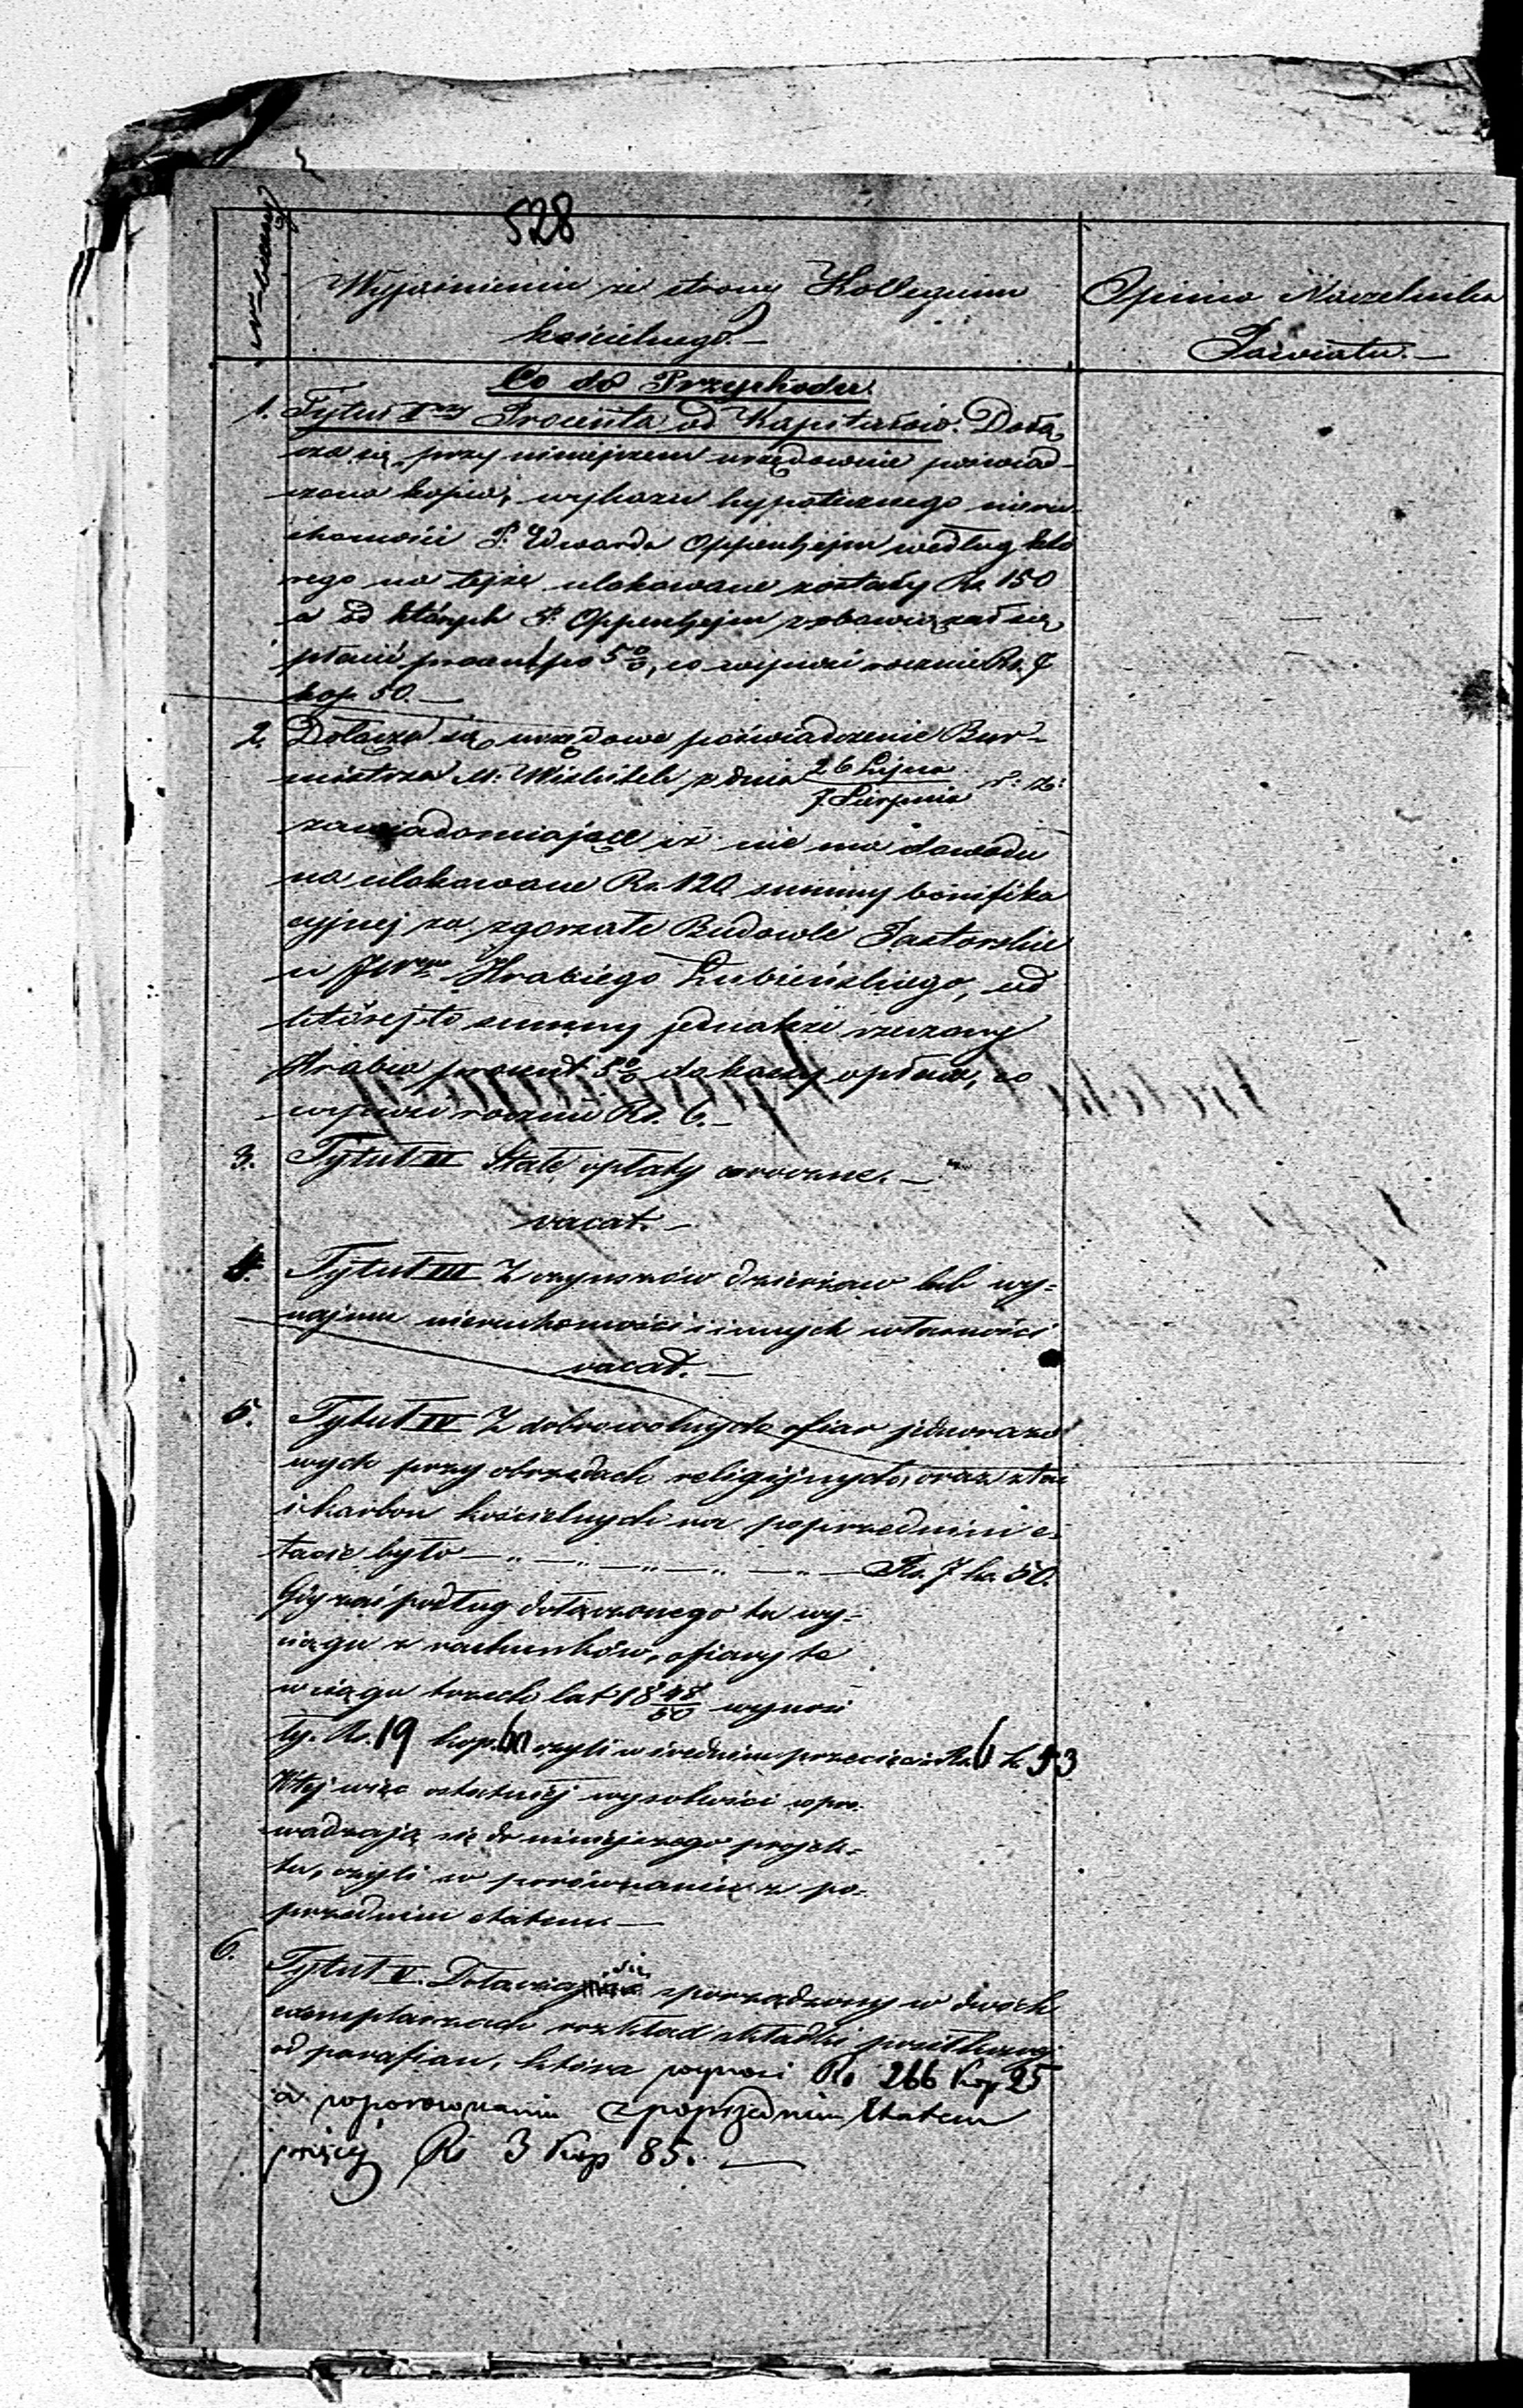 528
Wyjaśnienie ze strony Kollegium
kościelnego.—
Opinia Naczelnika
Powiatu.—
Co do Przychodu.
1. Tytuł I-szy Procenta od Kapitałów. Dołą
cza się przy niniejszem urzędownie poświad-
czona kopia, wykazu hypotecznego nieru-
chomości P. Edwarda Oppenhejm według któ
rego na tejże ulokowane zostały Rs. 150
a od których P. Oppenhejm zobowiązał się
płacić procent po 5%, co wynosi rocznie Rs. 7
kop. 50.—
2. Dołącza się urzędowe poświadczenie Bur-
mistrza M. Wiskitek z dnia 26 Lipca / 7 Sierpnia r: b:
zawiadomiające iż nie ma dowodu
na ulokowane Rs. 120 summy bonifika
cyjnej za zgorzałe Budowle Pastorskie
u JW Hrabiego Łubieńskiego, od
której to summy jednakże rzeczony
Hrabia procent 5% do kassy opłaca, co
wynosi rocznie Rs. 6.—
3. Tytuł II Stałe opłaty coroczne.—
vacat.—
4. Tytuł III Z czynszów dzierżaw lub wy=
najmu nieruchomości i innych własności
vacat.—
5. Tytuł IV Z dobrowolnych ofiar jednorazo
wych przy obrzędach religijnych, oraz z tac
i karbon kościelnych na poprzednim e-
tacie było —„—„—„—„—„— Rs. 7 k. 50.
Gdy zaś podług dołączonego tu wy=
ciągu z rachunków, ofiary te
w ciągu trzech lat 18 48/50 wynosi
ły. Rs. 19 kop. 60 czyli w średnim przecięciu Rs. 6 k. 53
W tej więc ostatniej wysokości wpro-
wadzają się do niniejszego projek=
tu, czyli w porównaniu z po=
przednim etatem.—
6. Tytuł V. Dołącza się sporządzony w dwóch
exemplarzach rozkład składki
od parafian, która wynosi Rs 266 kop 25
a w porownaniu z poprzednim Etatem
Rs 3 kop 85.—